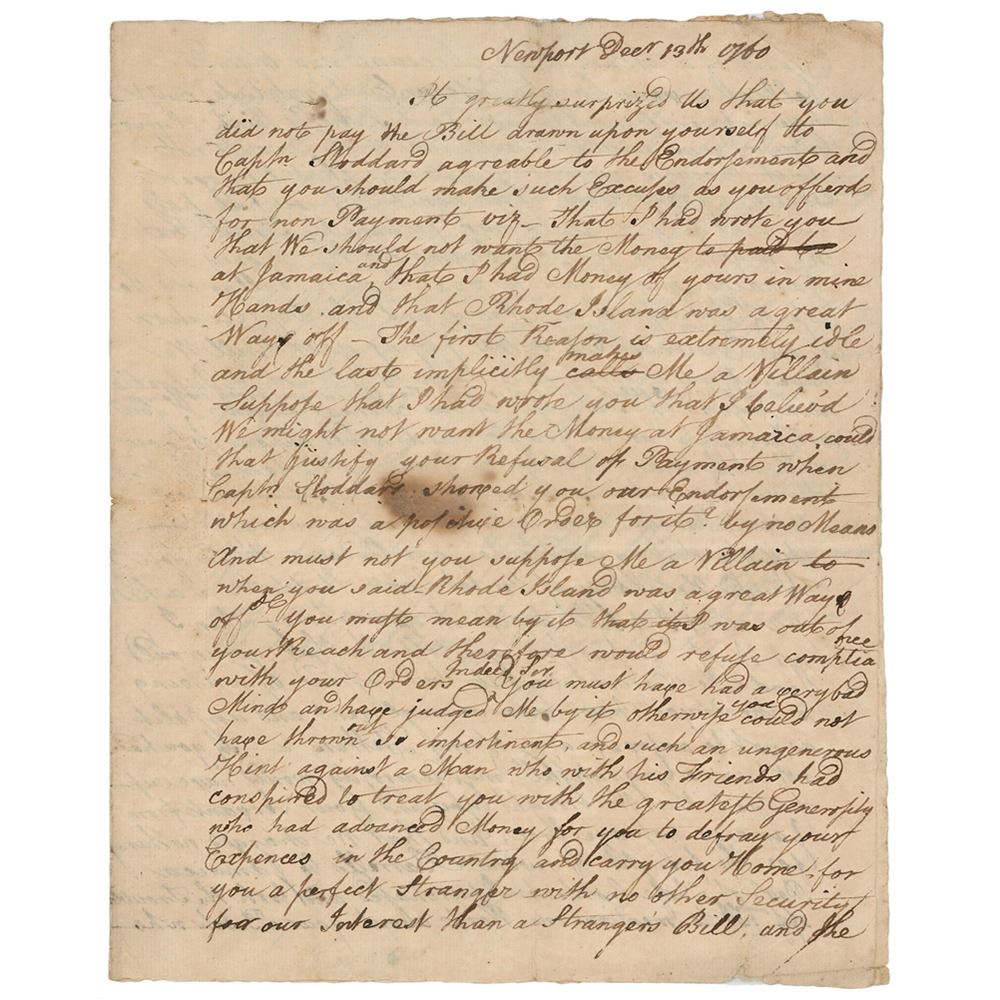 Newport Decr 13th 1760
It greatly surprized Us that you
did not pay the Bill drawn upon yourself to
Captn Stoddard agreable to the Endorsement and
that you should make such Excuses as you offerd
for non Payment viz – that I had wrote you
that We should not want the Money to paid to
at Jamaica, and that I had Money of yours in mine
Hands and that Rhode Island was a great
Way off – The first Reason is extremely idle
and the last implicitly calls makes Me a Villain
Suppose that I had wrote you that I believ'd
We might not want the Money at Jamaica, could
that justify your Refusal of Payment when
Captn Stoddard showed you our Endorsement
which was a positive Order for it? by no Means
And must not you suppose Me a Villain to
when you said Rhode Island was a great Way
off You must mean by it that it I was out of
your Reach and therefore would refuse compliance
with your Orders Indeed Sir You must have had a very bad
Mind and have judged Me by it otherwise you could not
have thrown out so impertinent, and such an ungenerous
Hint against a Man who with his Friends had
conspired to treat you with the greatest Generosity
who had advanced Money for you to defray your
Expences in the Country and carry you Home, for
you a perfect Stranger with no other Security
for our Interest than a Strangers Bill, and the